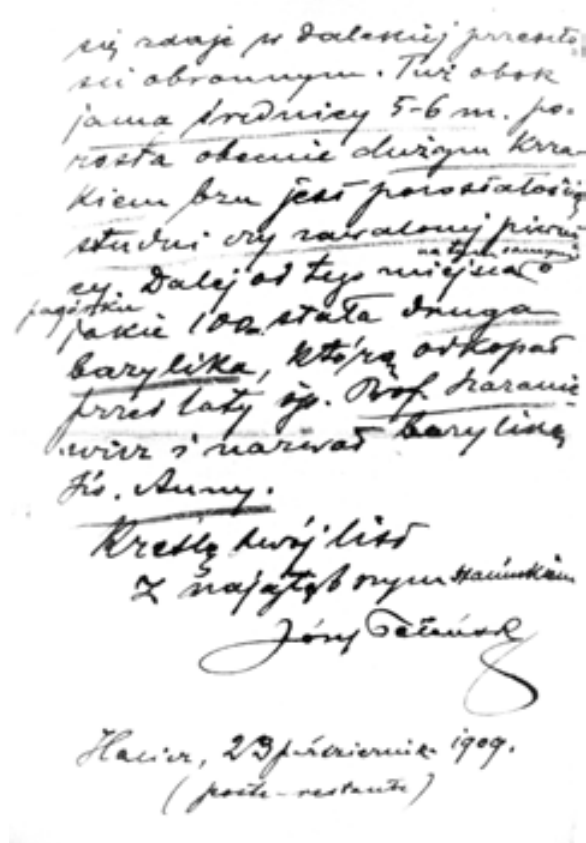 się zdaje w dalekiej przeszło
ści obronnym. Tuż obok
jama średnicy 5-6 m. po-
rosła obecnie dużym krza-
kiem bzu jest pozostałością
studni czy zawalonej piwni
na tym samym
cy. Dalej od tego miejsca
pagórku
jakie 100 stała druga
bazylika, którą odkopał
przed laty śp. Prof. Szaranie
wicz i nazwał bazyliką
Św. Anny.
Kreślę swój list
z najgłębszym szacunkiem
Józef Pełeński
Halicz, 23 października 1909.
(poste-restante)